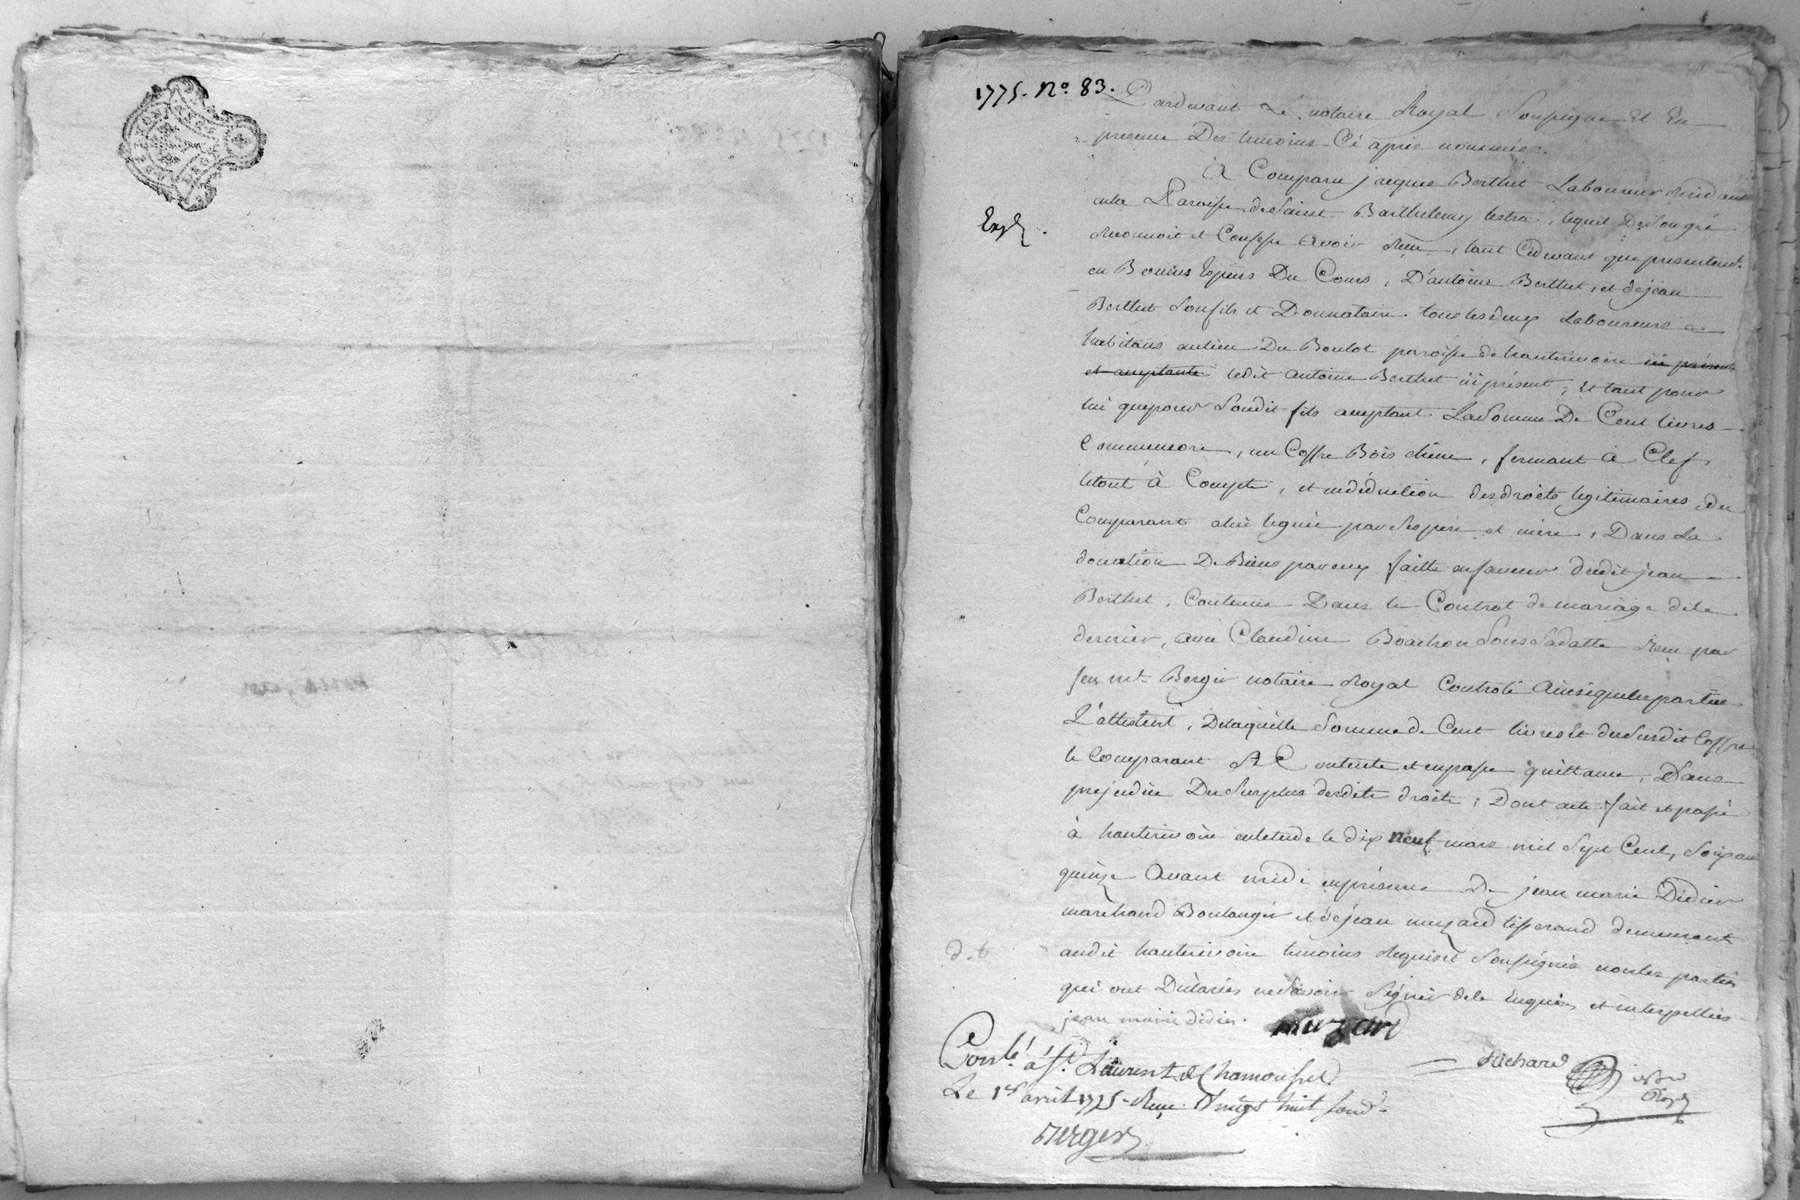 1775. No. 83.
Pardevant Le notaire Royal Soussigné Et En
presence Des temoins Cé aprés nommés.
A Comparu jacques Berthet Laboureur residant
en la Paroisse de Saint Barthelemy lestra, lequel De Son gré
Reconnoit et Confesse avoir Reçu, tant Cydevant que presentement
en Bonnes Espéces Du Cours, D'antoine Berthet, et de jean
Berthet Son fils et Donnataire tous les deux Laboureurs
habitans au lieu Du Boulot paroisse de hauterivoire ici présent
et acceptants ledit Antoine Berthet ici présent, et tant pour
lui que pour Son dit fils acceptant. La Somme De Cent livres
Comme encore, un Coffre Bois chêne, fermant à Clef
le tout à Compte, et en déduction des droits legitimaires du
Comparant à lui legués par Ses pere et mere, Dans La
donnation De Biens par eux faitte en faveur dudit jean
Berthet, Contenue Dans le Contrat de mariage de ce
dernier, avec Claudine Sous Sa datte Reçu par
feu me. Berger notaire Royal Controlé Ainsi que les parties
L'attestent, De laquelle Somme de Cent livres et du Surdit Coffre
le Comparant Se Contente et en passe quittance, Sans
prejudice Du Surplus desdits droits; Dont acte fait et passé
à hauterivoire en l'etude le dix neuf mars mil Sept Cent, Soixante
quinze Avant midi en présence De jean marie Didier
marchand Boulanger et de jean muzard tisserand demeurant
audit hauterivoire temoins Requis et Soussignés non les parties
qui ont Déclarées ne Savoir Signer de ce Enquises et interpellées
jean marie didier. muzard
Richard
Conlé. à St. Laurent de Chamousset
Le 1er avril 1775. Reçu Vingt huit sous
Berger